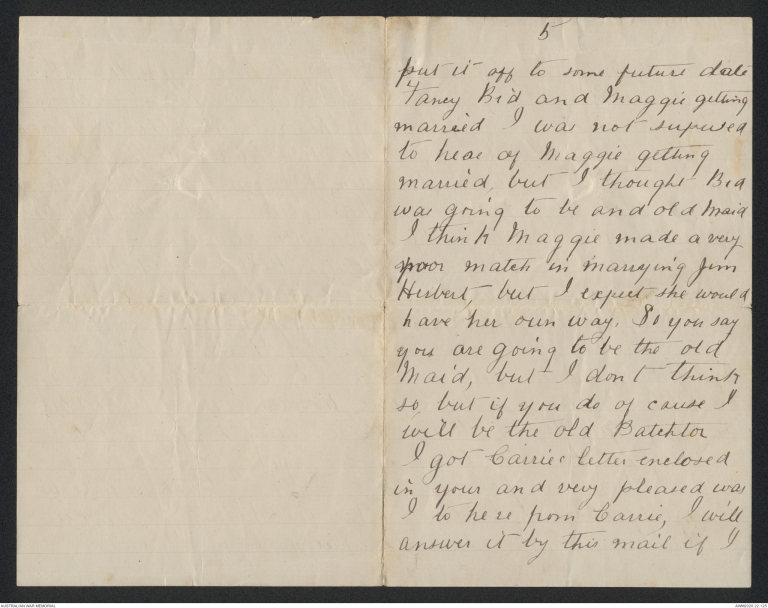 5
put it off to some future date
Fancy Bid and Maggie getting
married I was not supused
to hear of Maggie getting
married, but I thought Bid
was going to be and old Maid
I think Maggie made a very
poor match in marrying Jim
Hubert, but I expect she would
have her own way. So you say
you are going to be the old
Maid, but I don't think
so, but if you do of cause I
will be the old Batchlor
I got Carries letter enclosed
in your and very pleased was
I to here from Carrie, I will
answer it by this mail if I
AUSTRALIAN WAR MEMORIAL